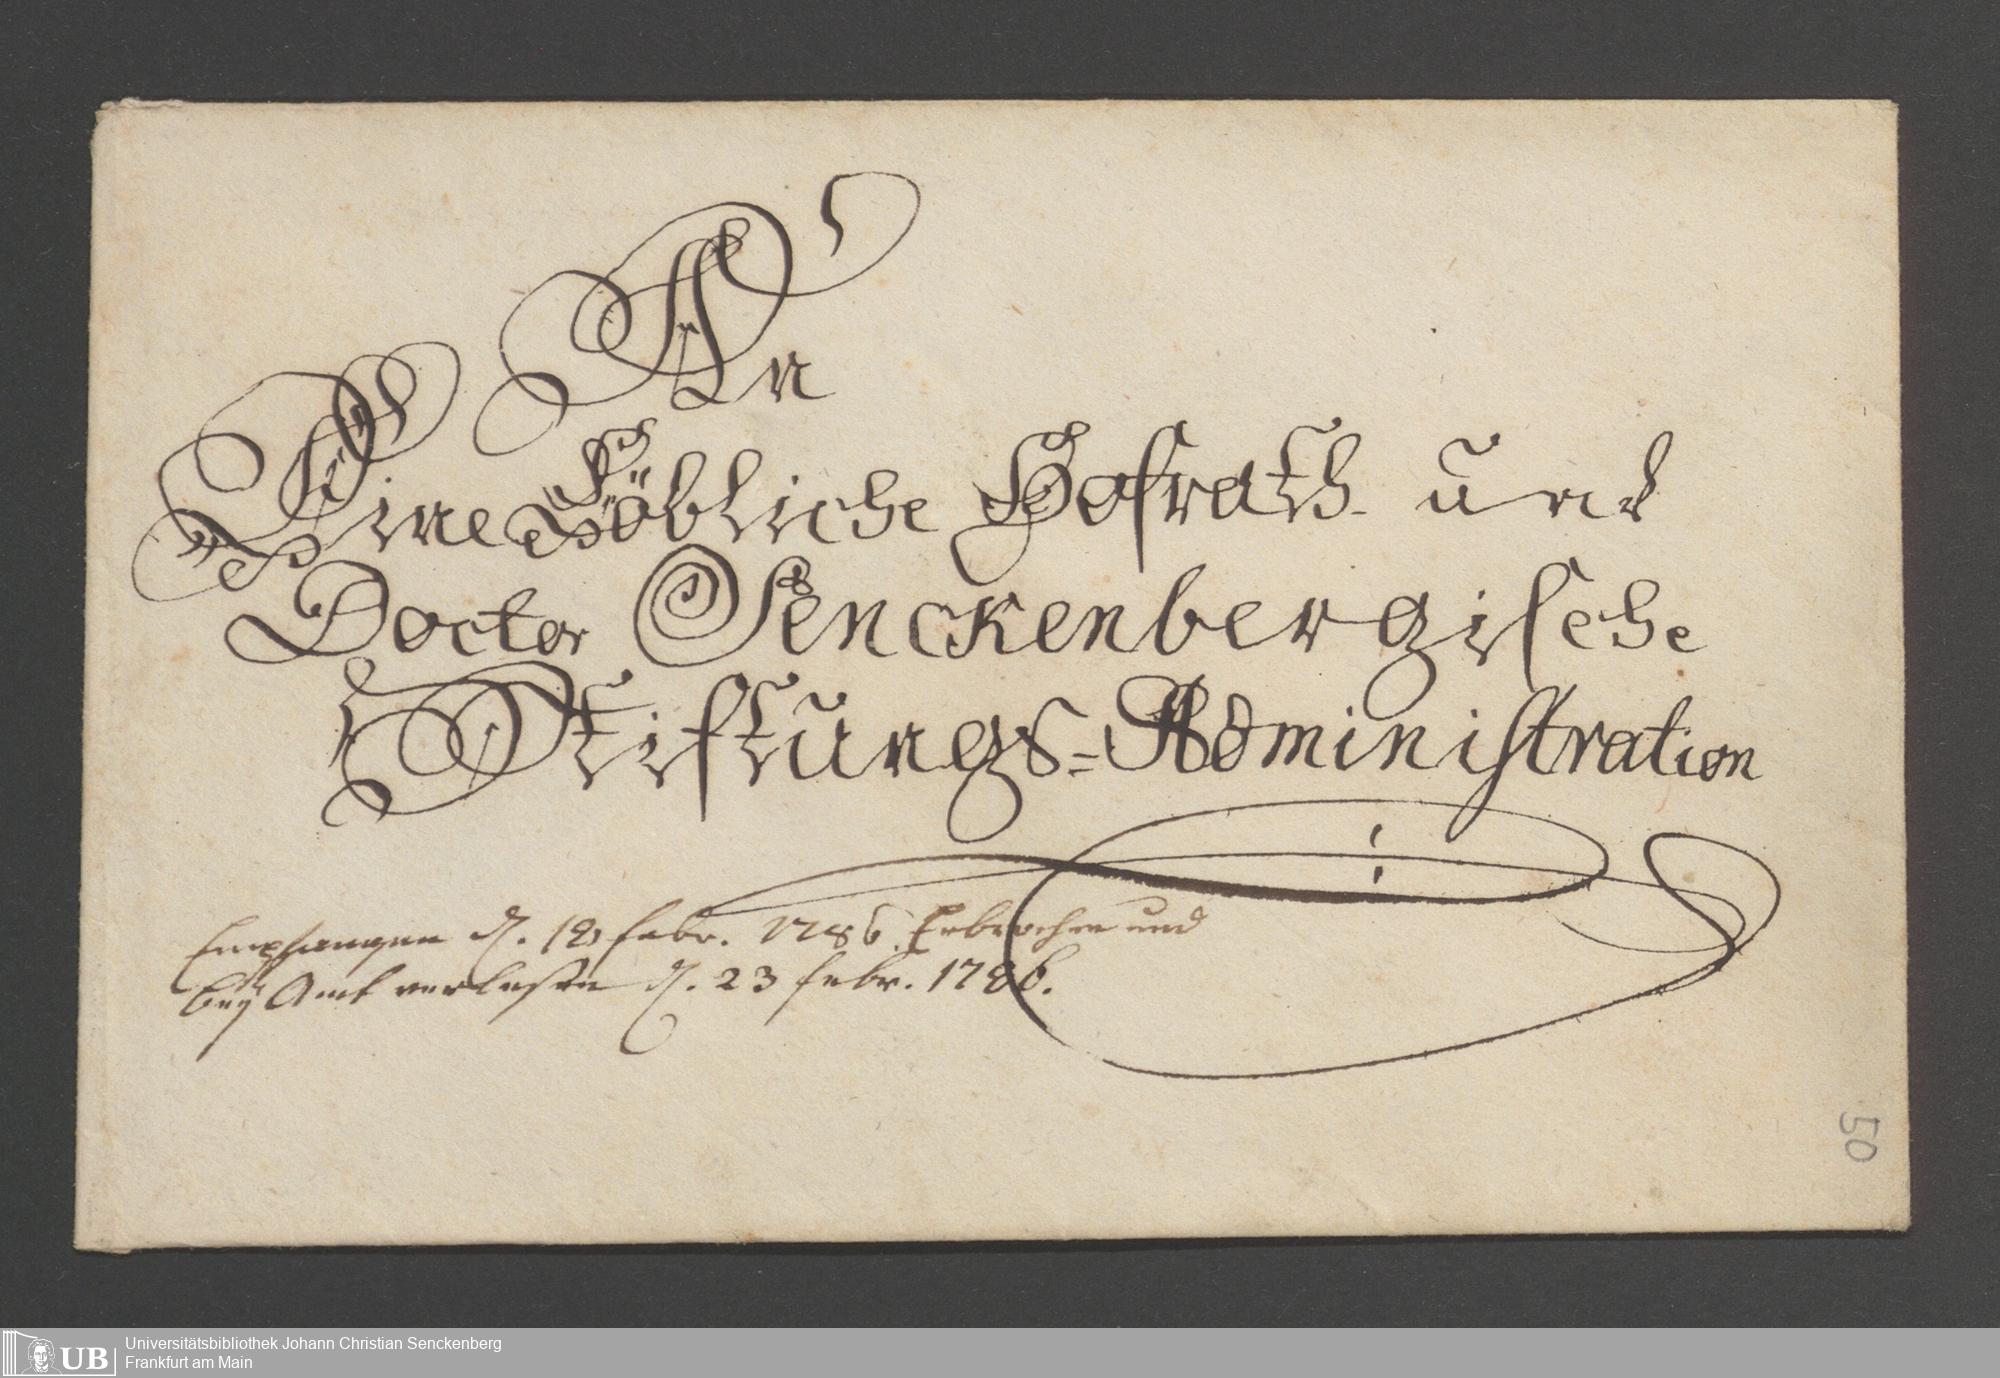 An
Eine Löbliche Hofrath- und
Doctor Senckenbergische
Stiftungs=Administration
Empfangen d. febr. 1786. Erbrochen und
bey Amt verlesen d. 23 febr. 1786.
50
UB
Universitätsbibliothek Johann Christian Senckenberg
Frankfurt am Main